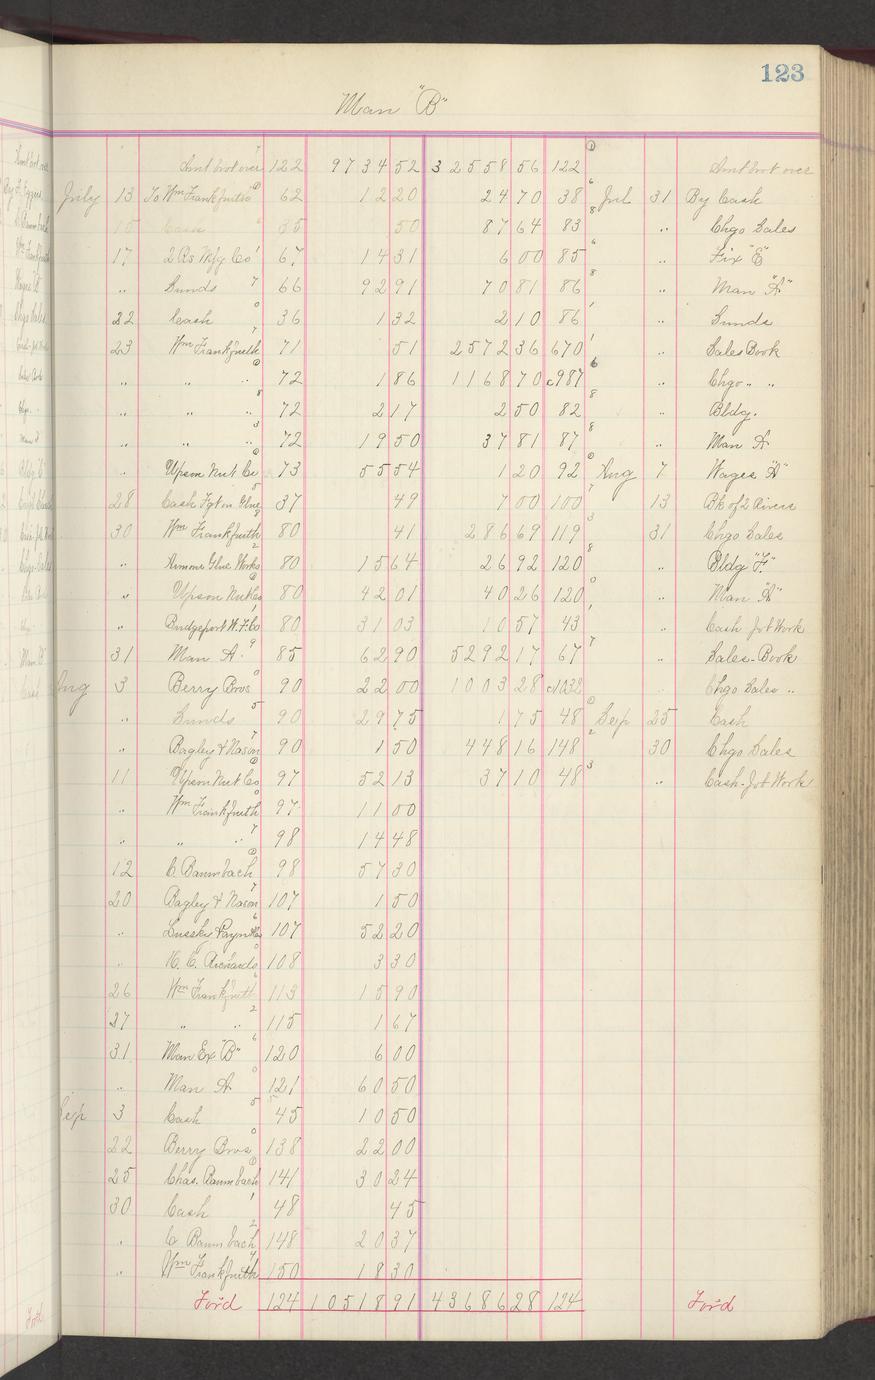 123
Man "B"
Amt brot over 122 9734 52 32558 56 122 Amt brot over
July 13 To Wm Frankfurth 62 12 20 24 70 38 Jul 31 By Cash
15 Cash 35 50 87 64 83 " Chgo Sales
17 2 Rs Mfg Co 67 14 31 6 00 85 " Fix "E"
" Sunds 66 92 91 70 81 86 " Man "A"
22 Cash 36 1 32 2 10 86 " Sunds
23 Wm Frankfurth 71 51 2572 36 670 " Sales Book
" " " 72 1 86 1168 70 c987 " Chgo " "
" " " 72 2 17 2 50 82 " Bldg.
" " " 72 19 50 37 81 87 " Man A
" Upson Nut Co 73 55 54 1 20 92 Aug 7 Wages "A"
28 Cash Fgt on Glue 37 49 7 00 100 13 Bk of 2 Rivers
30 Wm Frankfurth 80 41 286 69 119 31 Chgo Sales
" Armour Glue Works 80 15 64 26 92 120 " Bldg "F"
" Upson Nut Co 80 42 01 40 26 120 " Man "A"
" Bridgeport W.F. Co 80 31 03 10 57 43 " Cash Job Work
31 Man A. 85 62 90 5292 17 67 " Sales-Book
Aug 3 Berry Bros 90 22 00 1003 28 c1032 " Chgo Sales "
" Sunds 90 29 75 1 75 48 Sep 25 Cash
" Bagley & Nason 90 1 50 448 16 148 30 Chgo Sales
11 Upson Nut Co 97 52 13 37 10 48 " Cash-Job Work
" Wm Frankfurth 97 11 00
" " " 98 14 48
12 C. Baumbach 98 57 30
20 Bagley & Nason 107 1 50
" 107 52 20
" H. C. Richards 108 3 30
26 Wm Frankfurth 113 15 90
27 " " 115 1 67
31 Man Ex "B" 120 6 00
" Man A 121 60 50
Sep 3 Cash 45 10 50
22 Berry Bros 138 22 00
25 Chas. Baumbach 141 30 24
30 Cash 48 45
" C Baumbach 148 20 37
" Wm Frankfurth 150 18 30
Ford 124 10518 91 43686 28 124 Ford